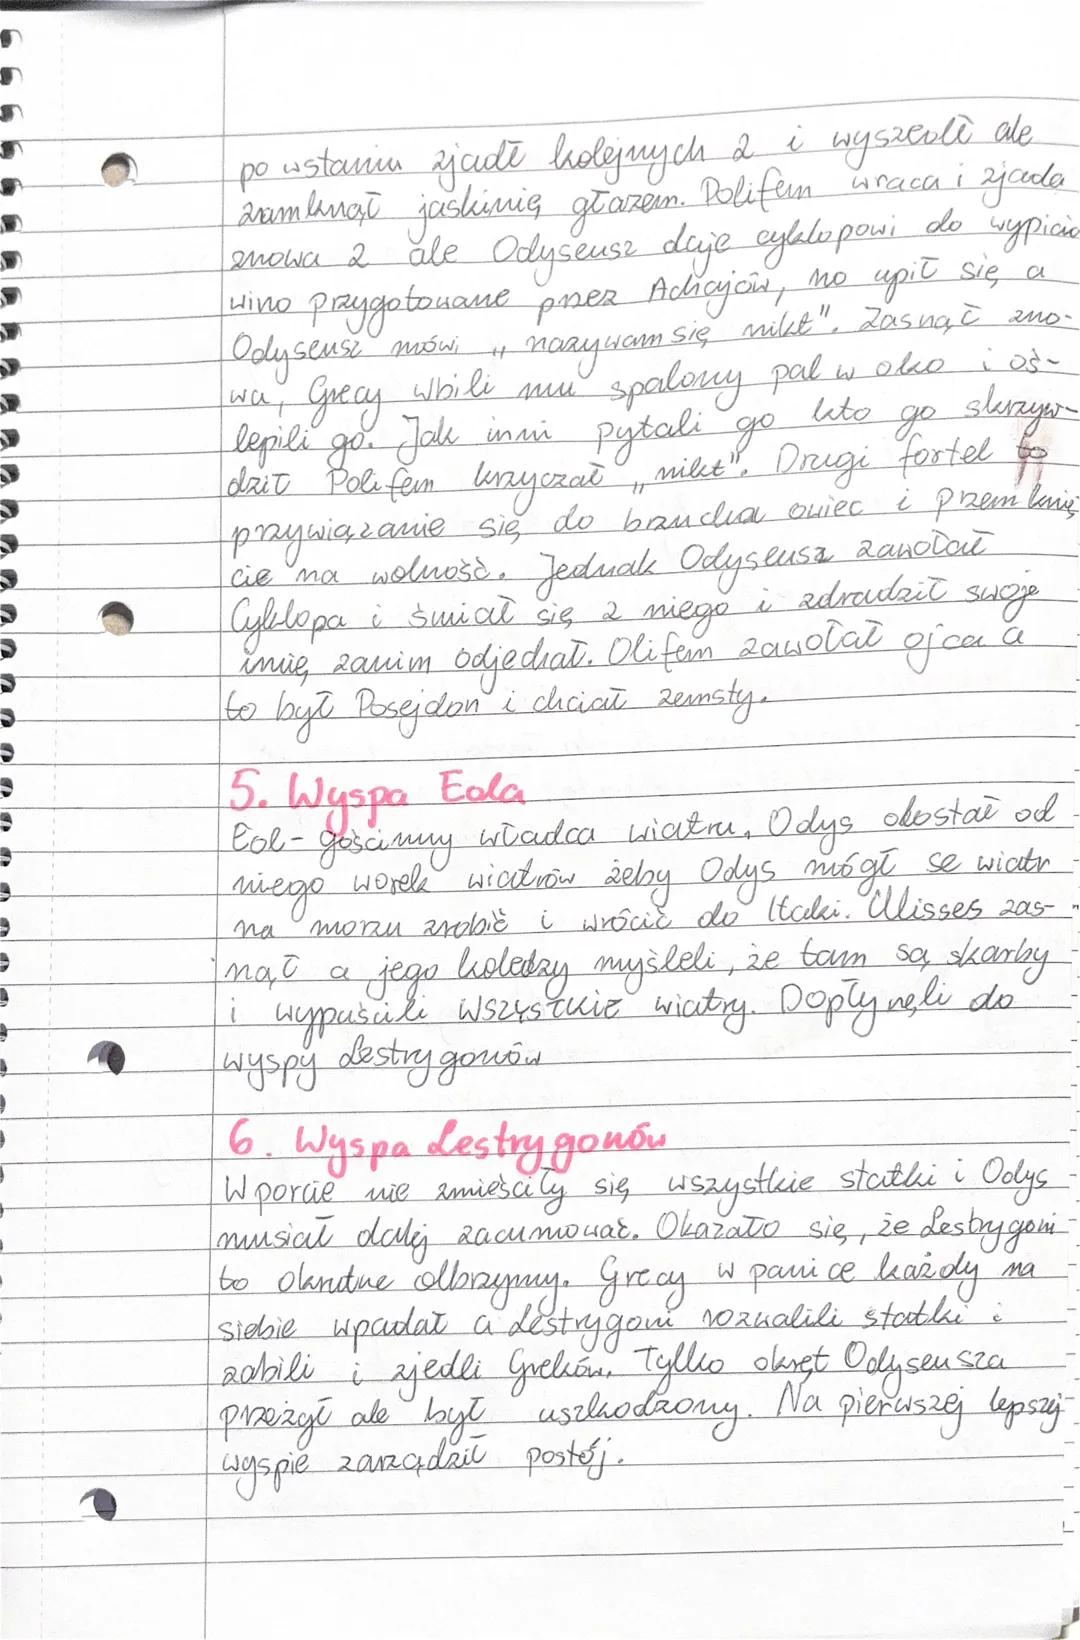 po wstaniu zjadł kolejnych 2 i wyszedł ale
zamknął jaskinię głazem. Polifem wraca i zjada
znowa 2 ale Odyseusz daje cyklopowi do wypicia
wino przygotowane przez Achajów, no upił się a
Odyseusz mówi „nazywam się nikt". Zasnął zno-
wa, Grecy wbili mu spalony pal w oko i oś-
lepili go. Jak inni pytali go kto go skrzyw-
dził Polifem krzyczał „nikt". Drugi fortel to
przywiązanie się do brzucha owiec i przemknię
cie na wolność. Jednak Odyseusz zawołał
Cyklopa i śmiał się z niego i zdradził swoje
imię zanim odjechał. Olifem zawołał ojca a
to był Posejdon i chciał zemsty.
5. Wyspa Eola
Eol - gościnny władca wiatru, Odys dostał od
niego worek wiatrów żeby Odys mógł se wiatr
na morzu zrobić i wrócić do Itaki. Ulisses zas-
nął a jego koledzy myśleli, że tam są skarby
i wypuścili wszystkie wiatry. Dopłynęli do
wyspy Lestrygonów
6. Wyspa Lestrygonów
W porcie nie zmieściły się wszystkie statki i Odys
musiał dalej zacumować. Okazało się, że Lestrygoni
to okrutne olbrzymy. Grecy w panice każdy na
siebie wpadał a Lestrygoni rozwalili statki i
zabili i zjedli Greków. Tylko okręt Odyseusza
przeżył ale był uszkodzony. Na pierwszej lepszej
wyspie zarządził postój.